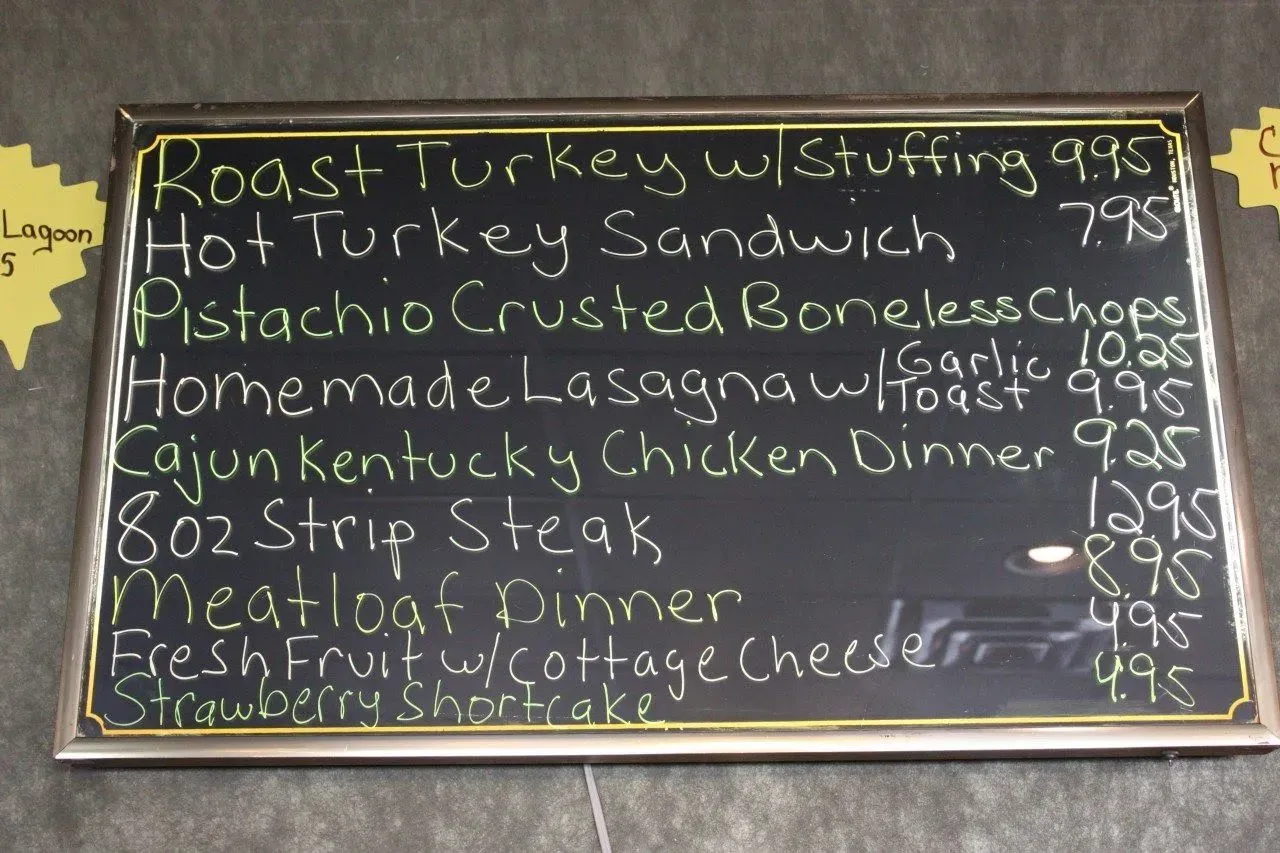 Roast Turkey w/Stuffing 9.95
Hot Turkey Sandwich 7.95
Pistachio Crusted Boneless Chops
10.25
Homemade Lasagna w/Garlic Toast 9.95
Cajun Kentucky Chicken Dinner 9.25
8oz Strip Steak 12.95
Meatloaf Dinner 8.95
Fresh Fruit w/cottage Cheese 4.95
Strawberry Shortcake 4.95
Lagoon
5